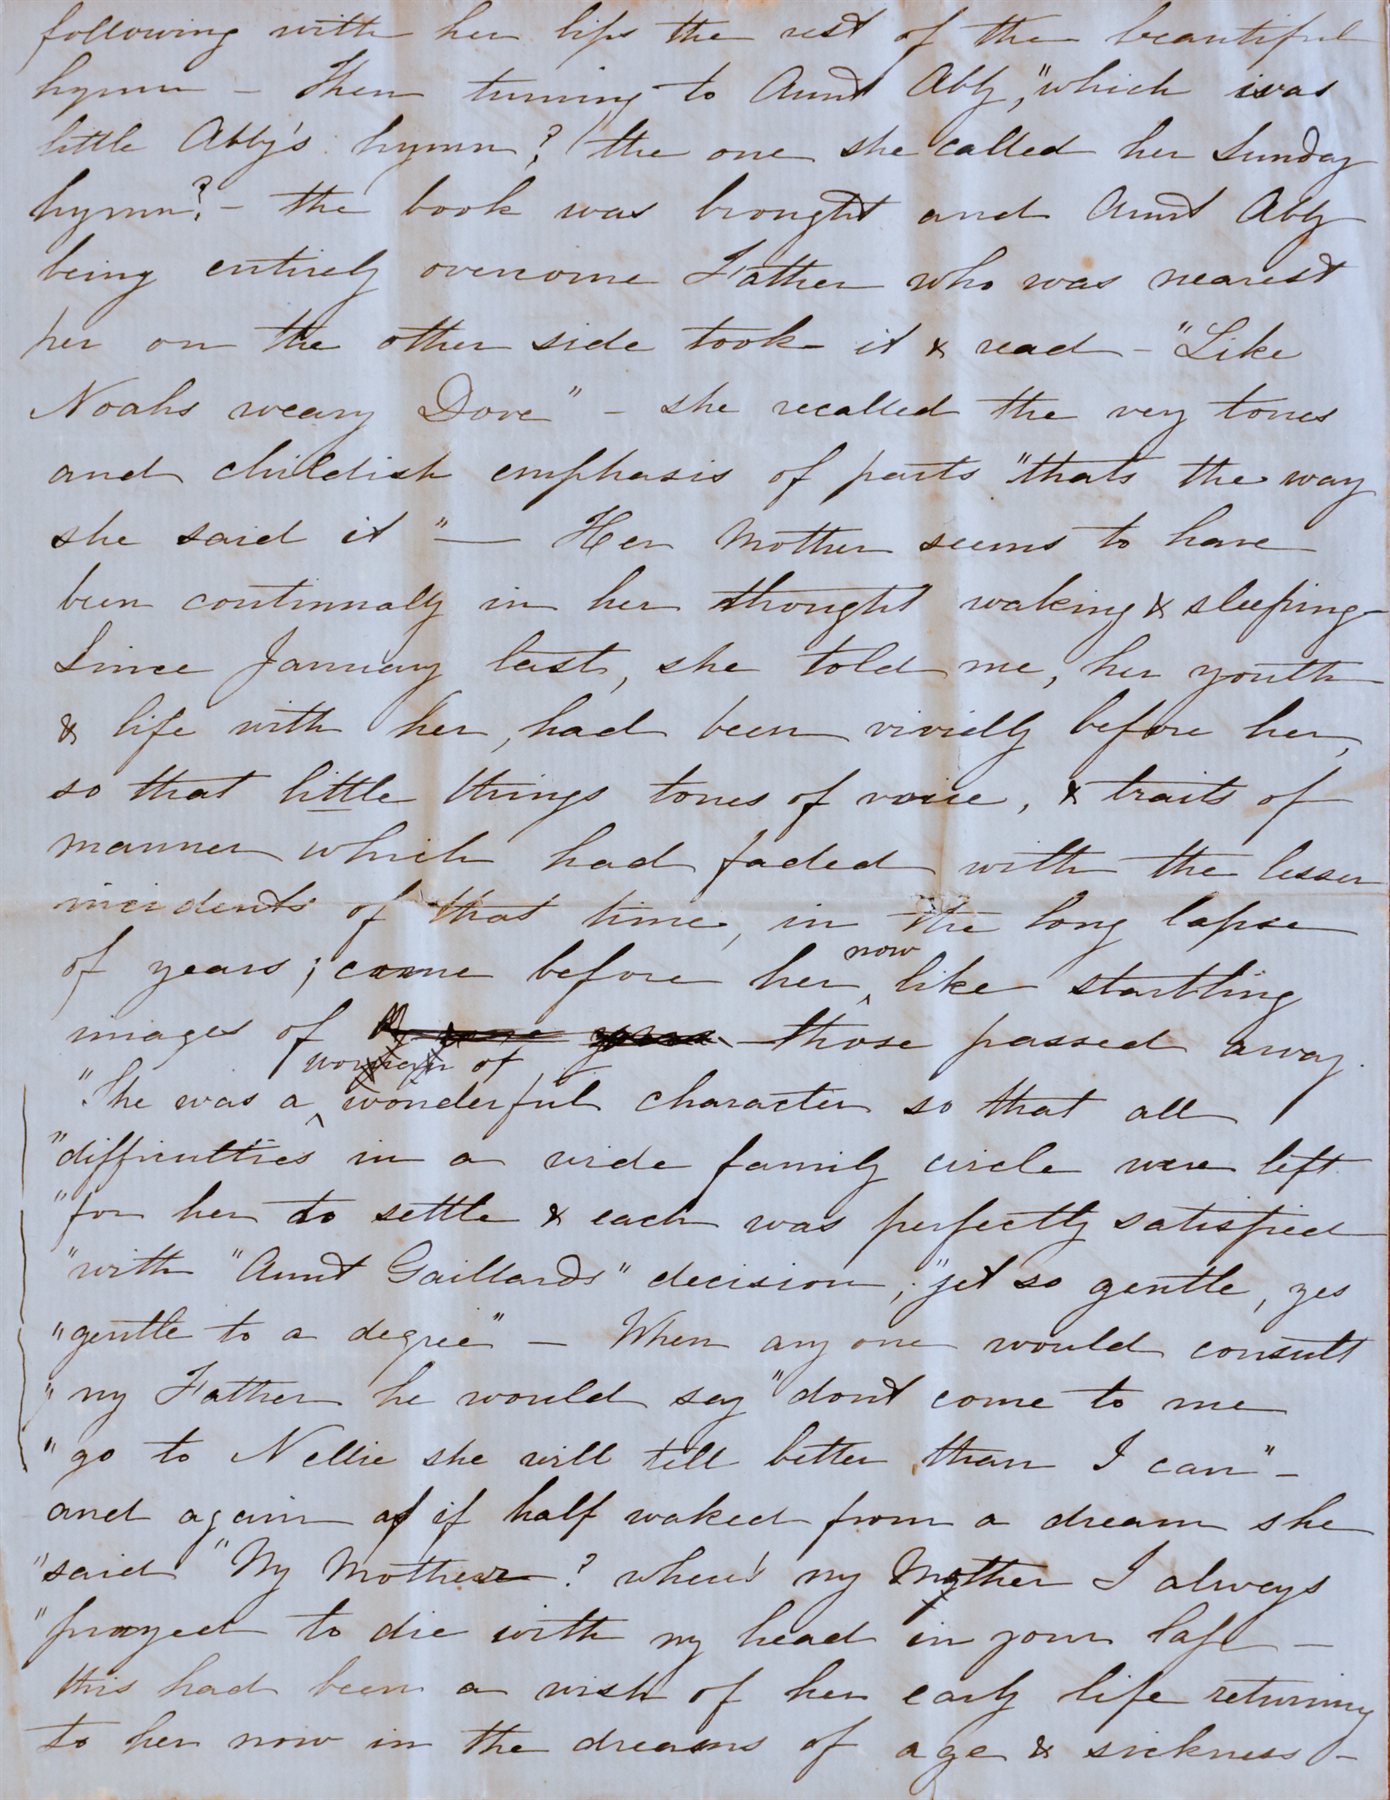 following with her lips the rest of the beautiful
hymn – Then turning to Aunt Abby, "which was
little Abby's hymn? the one she called her Sunday
hymn? – the book was brought and Aunt Abby
being entirely overcome Father who was nearest
her on the other side took it & read – "Like
Noahs weary Dove" – she recalled the very tones
and childish emphasis of parts "thats the way
she said it" — Her Mother seems to have
been continually in her thought waking & sleeping –
Since January last, she told me, her youth
& life with her, had been vividly before her,
so that little things tones of voice, & traits of
manner which had faded with the lesser
incidents of that time, in the long lapse
of years; came before her now like startling
images of those passed away.
"She was a woman of wonderful character so that all
"difficulties in a wide family circle were left
"for her to settle & each was perfectly satisfied
"with "Aunt Gaillards" decision, "yet so gentle, yes
"gentle to a degree" – When any one would consult
"my Father he would say "dont come to me
"go to Nellie she will tell better than I can" –
and again as if half waked from a dream she
"said "My Mother? where's my Mother I always
"prayed to die with my head in your lap –
this had been a wish of her early life returning
to her now in the dreams of age & sickness –